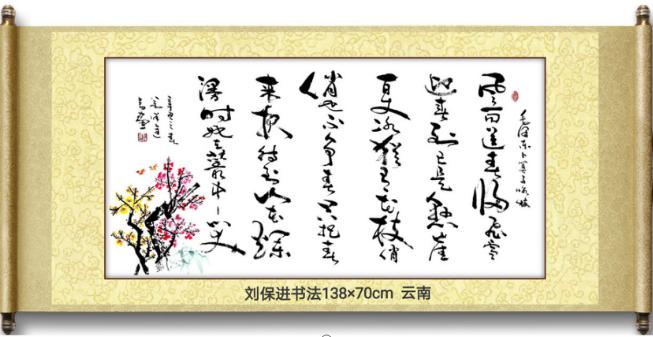 毛泽东卜算子咏梅
风雨送春归飞雪
迎春到已是悬崖
百丈冰犹有花枝俏
俏也不争春只把春
来报待到山花烂
漫时她在叢中笑
刘保进书法138×70cm 云南